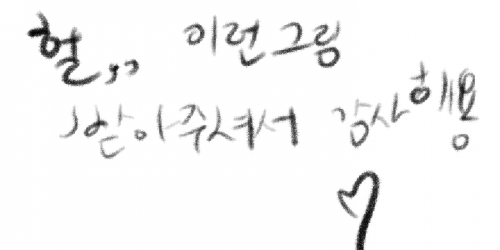 헐,,, 이런그림
받아주셔서 감사해용